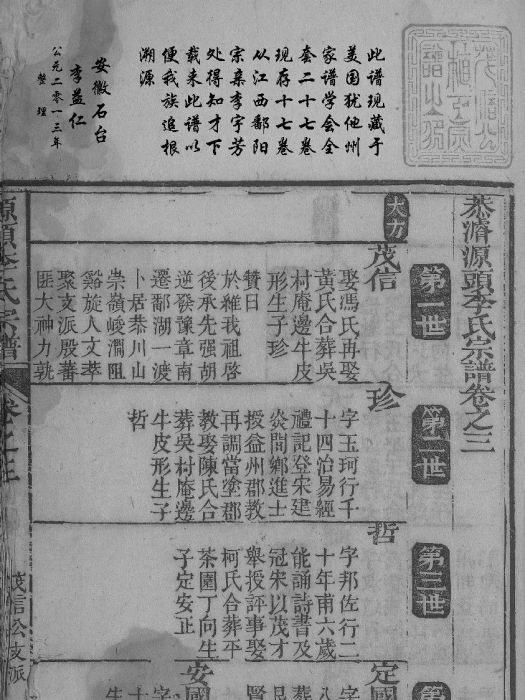 此谱现藏于
美国犹他州
家谱学会全
套二十七卷
现存十七卷
从江西鄱阳
宗亲李宇芳
处得知才下
载来此谱以
便我族追根
溯源
安徽石台
李益仁
公元二零一三年
整理
恭濟源頭李氏宗譜卷之三
第一世
第二世
第三世
大力
茂信
娶馮氏再娶
黃氏合葬吳
村庵邊牛皮
形生子珍
贊曰
於維我祖啓
後承先强胡
逆發豫章南
遷鄱湖一渡
卜居恭川山
崇嶺峻澗阻
谿旋人文萃
聚支派殷蕃
匪大神力孰
珍
字玉珂行千
十四治易經
禮記登宋建
炎間鄉進士
授益州郡教
再調當塗郡
教娶陳氏合
葬吳村庵邊
牛皮形生子
哲
哲
字邦佐行二
十年甫六歲
能誦詩書及
冠宋以茂才
舉授評事娶
柯氏合葬平
茶園丁向生
子定安正
定國
安國
源頭李氏宗譜
卷之三
茂信公支派